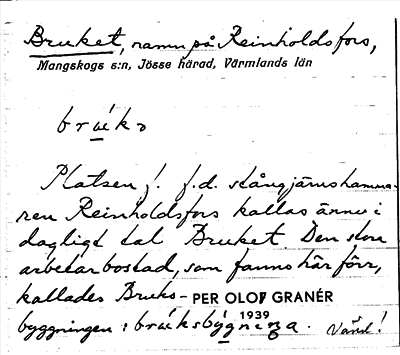 Bruket, namn på Reinholdsfors,
Mangskogs s:n, Jösse härad, Värmlands län
Platsen f. f.d. stångjärnshamma-
ren Reinholdsfors kallas ännu i
dagligt tal Bruket. Den stora
arbetarbostad, som fanns här förr,
kallades Bruks- PER OLOF GRANÉR
1939
byggningen :
Vänd!